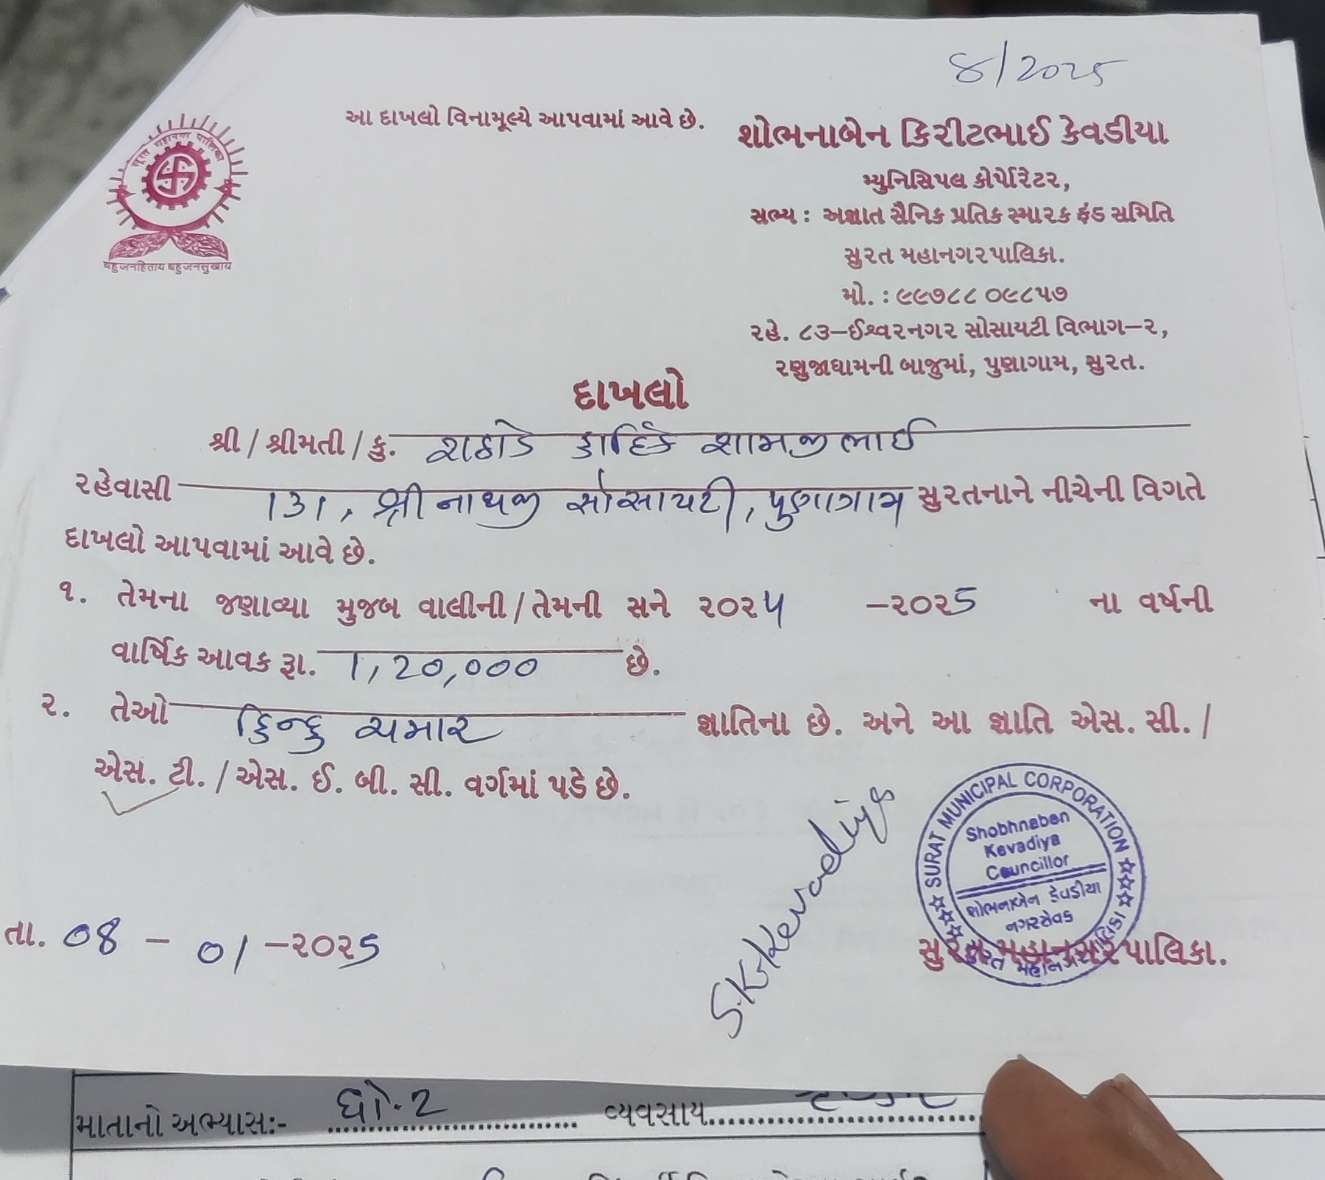 8/2025
આ દાખલો વિનામૂલ્યે આપવામાં આવે છે.
શોભનાબેન કિરીટભાઈ કેવડીયા
મ્યુનિસિપલ કોર્પોરેટર,
સભ્ય : અજ્ઞાત સૈનિક પ્રતિક સ્મારક ફંડ સમિતિ
સુરત મહાનગરપાલિકા.
મો. : ૯૯૭૮૮ ૦૯૮૫૭
રહે. ૮૩-ઈશ્વરનગર સોસાયટી વિભાગ-૨,
રણુજાધામની બાજુમાં, પુણાગામ, સુરત.
સુરત મહાનગર પાલિકા
बहुजनहिताय बहुजनसुखाय
દાખલો
શ્રી / શ્રીમતી / કુ. રાઠોડ કાર્તિક શામજીભાઈ
રહેવાસી 131, શ્રીનાથજી સોસાયટી, પુણાગામ સુરતનાને નીચેની વિગતે
દાખલો આપવામાં આવે છે.
૧. તેમના જણાવ્યા મુજબ વાલીની / તેમની સને ૨૦૨૪ -૨૦૨5 ના વર્ષની
વાર્ષિક આવક રૂા. 1,20,000 છે.
૨. તેઓ હિન્દુ ચમાર જ્ઞાતિના છે. અને આ જ્ઞાતિ એસ. સી. /
એસ. ટી. / એસ. ઈ. બી. સી. વર્ગમાં પડે છે.
S.K.Kevadiya
SURAT MUNICIPAL CORPORATION
Shobhnaben
Kevadiya
Councillor
શોભનાબેન કેવડીયા
નગરસેવક
સુરત મહાનગરપાલિકા
તા. 08 - 01 -૨૦૨5
સુરત મહાનગરપાલિકા.
માતાનો અભ્યાસ:- ધો.2 વ્યવસાય